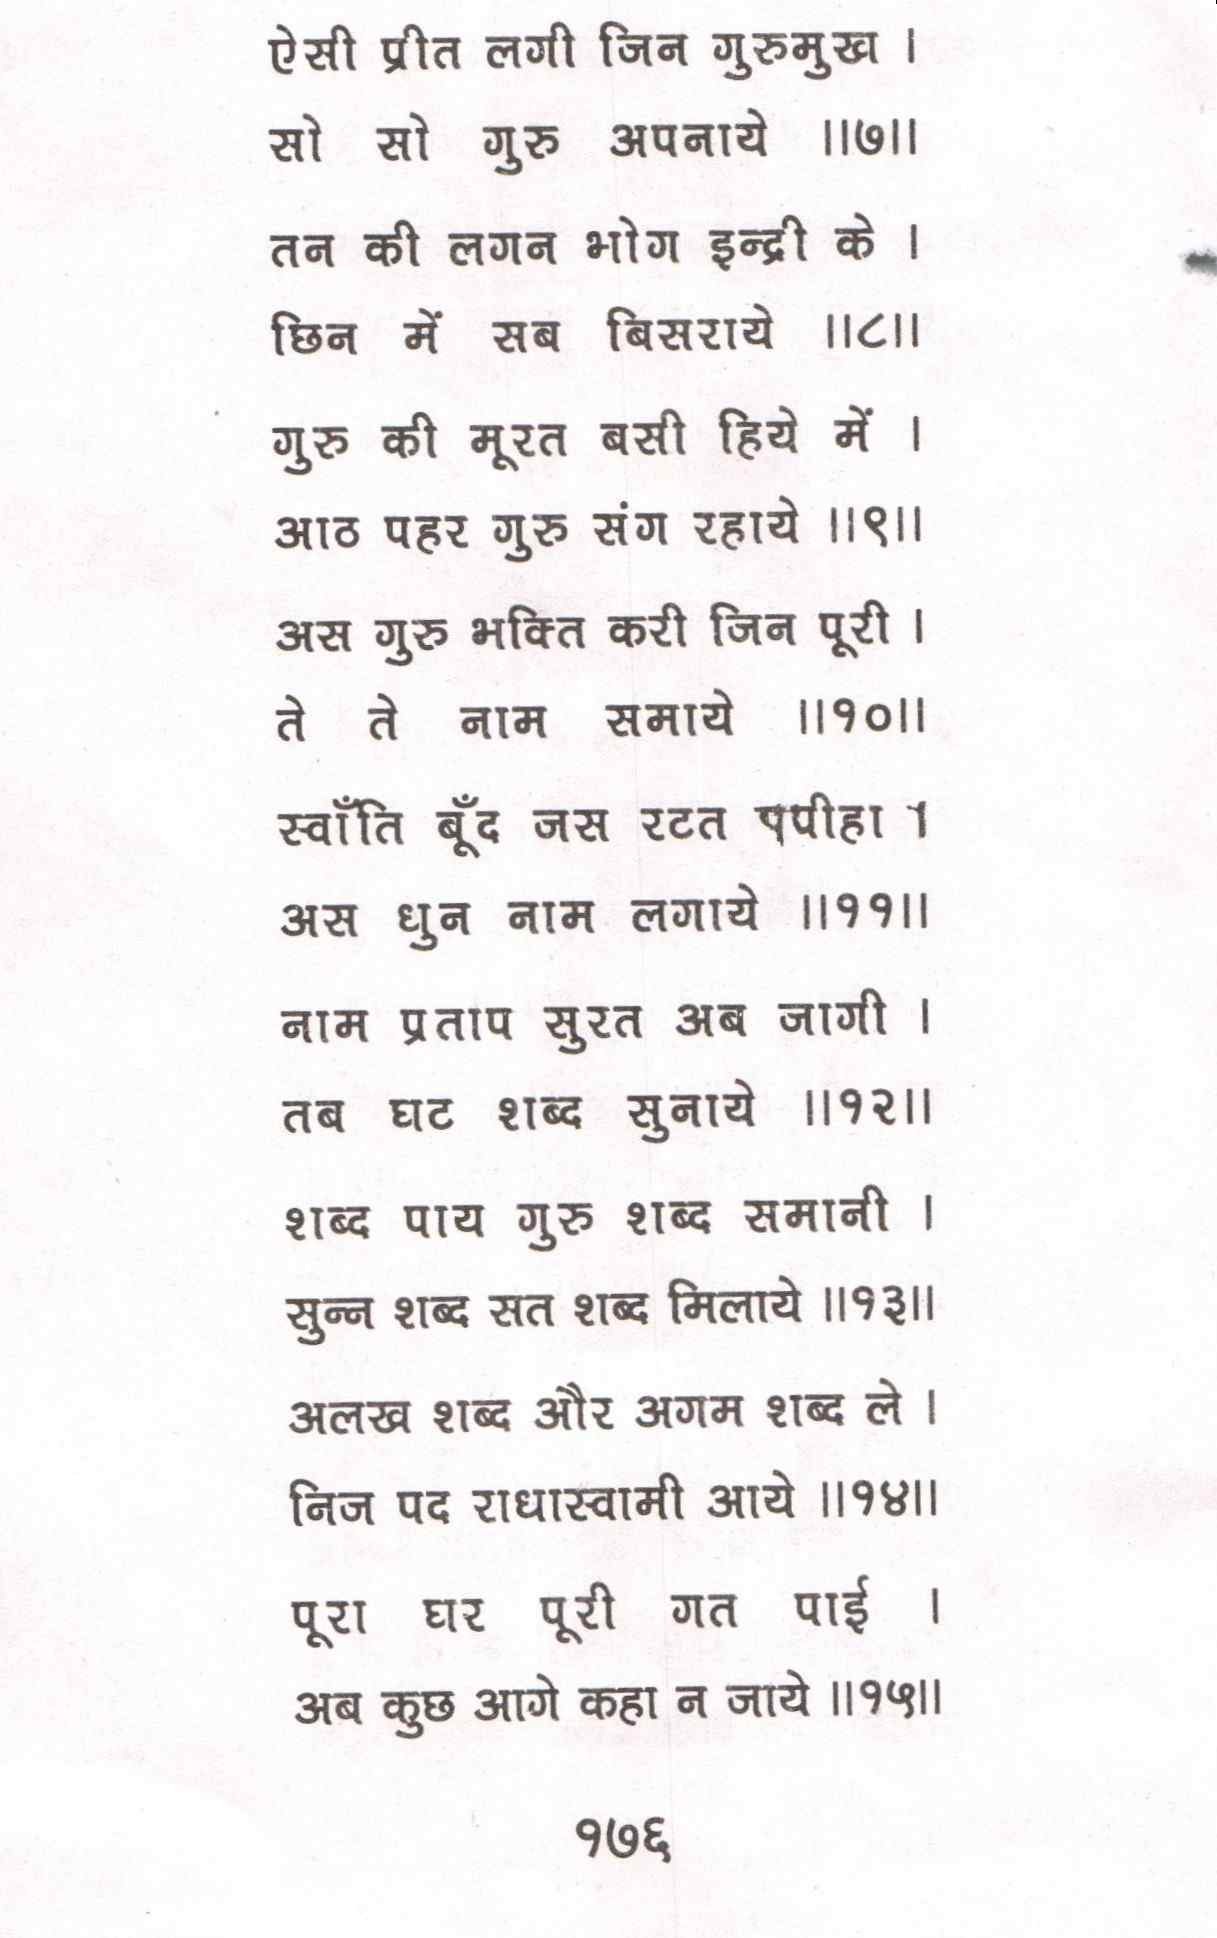 ऐसी प्रीत लगी जिन गुरुमुख ।
सो सो गुरु अपनाये ॥७॥
तन की लगन भोग इन्द्री के ।
छिन में सब बिसराये ॥८॥
गुरु की मूरत बसी हिये में ।
आठ पहर गुरु संग रहाये ॥९॥
अस गुरु भक्ति करी जिन पूरी ।
ते ते नाम समाये ॥१०॥
स्वाँति बूँद जस रटत पपीहा ।
अस धुन नाम लगाये ॥११॥
नाम प्रताप सुरत अब जागी ।
तब घट शब्द सुनाये ॥१२॥
शब्द पाय गुरु शब्द समानी ।
सुन्न शब्द सत शब्द मिलाये ॥१३॥
अलख शब्द और अगम शब्द ले ।
निज पद राधास्वामी आये ॥१४॥
पूरा घर पूरी गत पाई ।
अब कुछ आगे कहा न जाये ॥१५॥
१७६